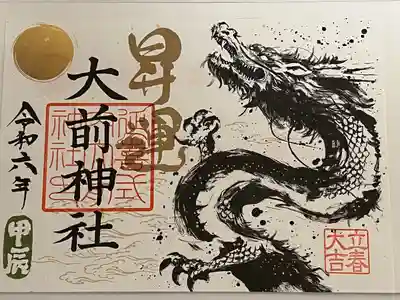 昇運
大前神社
令和六年
甲辰
立春
大吉